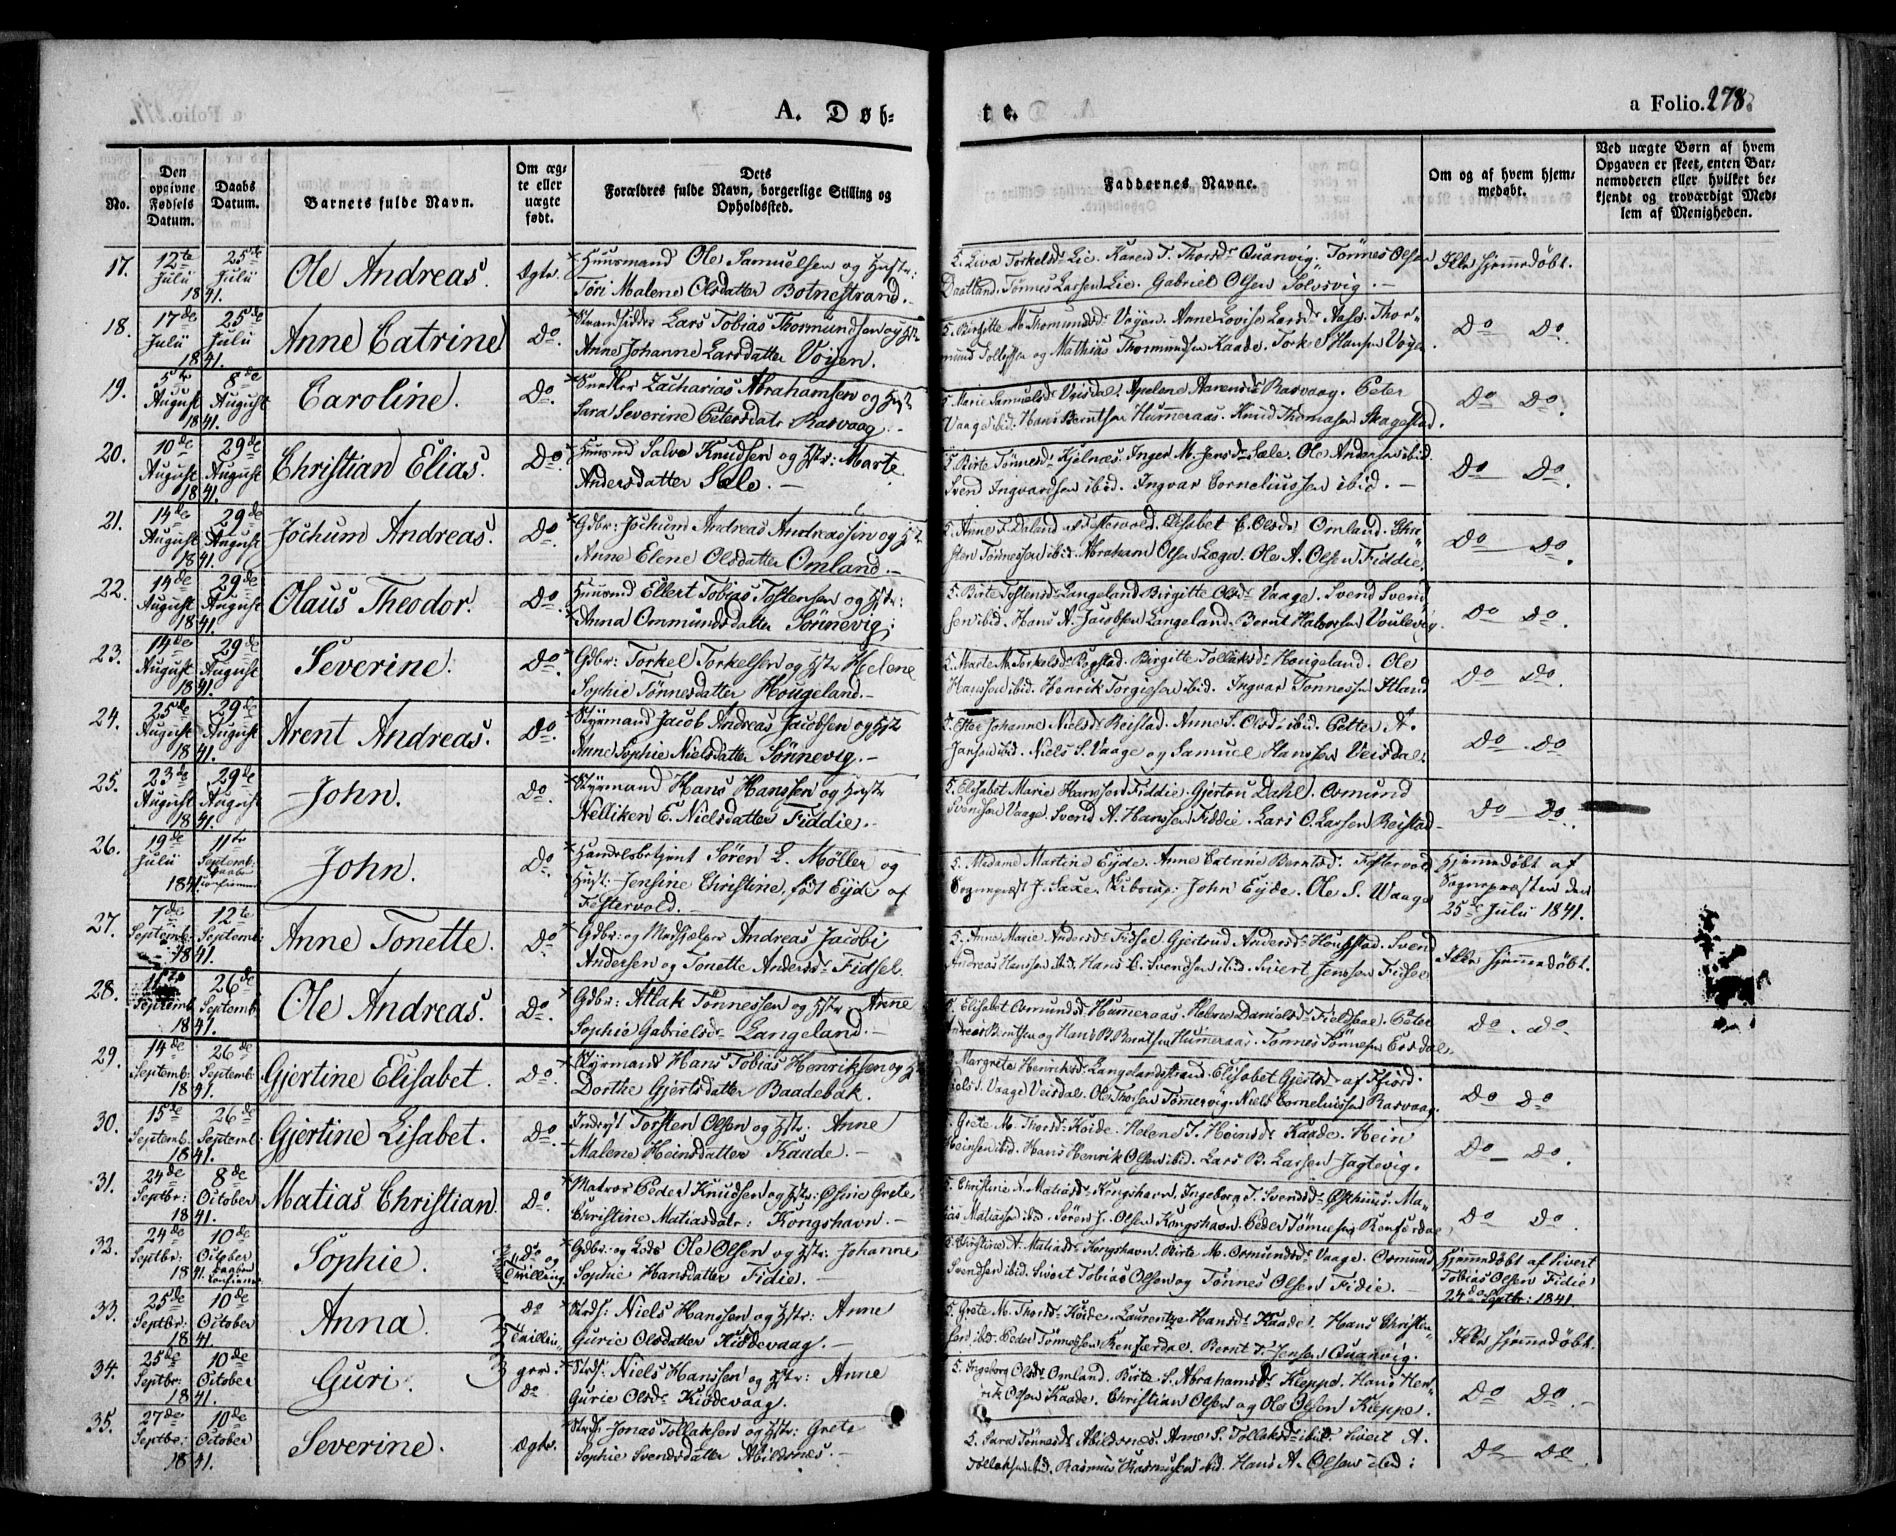 A. Døb-
te.
a Folio. 278.
No.
Den opgivne Fødsels Datum.
Daabs Datum.
Barnets fulde Navn.
Om ægte eller uægte født.
Dets Forældres fulde Navn, borgerlige Stilling og Opholdssted.
Faddernes Navne.
Om og af hvem hjemmedøbt.
Ved uægte Børn af hvem Opgaven er skeet, enten Barnemoderen eller hvilket bekjendt og troværdigt Medlem af Menigheden.
17. 12te Julii 1841. 25de Julii Ole Andreas. Ægte. Huusmand Ole Samuelsen og Hustr:
Tori Malene Olsdatter Botnestrand.
5. Liva Torkelsdr Lie. Karen T. Thorsdr Quanvig. Tönnes Olsen
Daatland. Tönnes Larsen Lie. Gabriel Olsen Solvsvig. Ikke hjemmedøbt.
18. 17de Julii 1841. 25de Julii Anne Catrine Do. Strandsidder Lars Tobias Thormundsen og Hst
Anne Johanne Larsdatter Vöyen.
5. Birgitte M. Thomundsdr Vöyen. Anne Lovise Larsdr Aase. Thor-
mund Tollefsen og Mathias Thormundsen Kaade. Torkel Hansen Vöyen. Do Do
19. 5te August 1841. 8de August Caroline. Do. Snedker Zacharias Abrahamsen og Hst
Sara Severine Petersdatr Rasvaag.
5. Marie Samuelsdr Veisdal. Apelone Aarensdr Rasvaag. Peter
Vaage ibid. Hans Berntsen Hummeraas. Knud Thomasen Skagestad. Do Do.
20. 10de August 1841. 29de August Christian Elias. Do Huusmd Salve Knudsen og Hstr: Marte
Andersdatter Sæle.
5. Birte Tönnesdr Kjelnæs. Inger M. Jensdr Sæle. Ole Andersen ibid.
Svend Ingvardsen ibid. Ingvar Corneliussen ibid. Do Do.
21. 14de August 1841. 29de August Jochum Andreas. Do Gdbr: Jochum Andreas Andreassen og Hst
Anne Elene Olsdatter Omland.
5. Anne F. Daland af Festervold. Elisabet E. Olsdr Omland. Chri-
sten Tönnessen ibid. Abraham Olsen Læga. Ole A. Olsen Fiddie. Do Do.
22. 14de August 1841. 29de August Olaus Theodor. Do. Huusmd Ellert Tobias Tostensen og Hstr:
Anna Ommundsdatter Sönnevig.
5. Birte Tostensdr Langeland. Birgitte Olsdr Vaage. Svend Svend-
sen ibid. Hans A. Jacobsen Langeland. Bernt Halvorsen Voulevig. Do Do.
23. 14de August 1841. 29de August Severine. Do. Gdbr: Torkel Torkelsen og Hstr Helene
Sophie Tönnesdatter Hougeland.
5. Marte M. Torkelsdr Rogstad. Birgitte Tollaksdr Hougeland. Ole
Hanssen ibid. Henrik Torgiersen ibid. Ingvar Tonnessen Stland Do Do.
24. 25de August 1841. 29de August Arent Andreas. Do. Styrmand Jacob Andreas Jacobsen og Hst
Anne Sophie Nielsdatter Sönnevig.
Johanne Nielsdr Reistad. Anne S. Olsdr ibid. Petter A.
Jansen ibid. Niels S. Vaage og Samuel Hanssen Veisdal. Do Do
25. 23de August 1841. 29de August John. Do. Styrmand Hans Hanssen og Hustr
Nelliken E. Nielsdatter Fiddie.
5. Elisabet Marie Hanssen Fiddie. Gjertru Dahl. Osmund
Svendsen Vaage. Svend A. Hanssen Fiddie. Lars O. Larsen Reistad Do Do.
26. 19de Julii 1841. 11te Septemb: Daaben confirmeret John. Do Handelsbetjent Sören L. Möller og
Hust: Jensine Christine, födt Eyde af
Festervold.
5. Madame Martine Eyde. Anne Catrine Berntsd: Festervold
Sogneprest J. Saxe. John Eyde. Ole S. Waage Hjemmedöbt af
Sognepresten den
25de Julii 1841.
27. 7de Septemb: 1841. 12te Septemb: Anne Tonette. Do Gdbr: og Medhjelper Andreas Jacobi
Andersen og Tonette Andersdr Fidsel.
5. Anne Marie Andersdr Fidsel. Gjertrud Andersdr Hougstad. Svend
Andreas Hanssen ibid. Hans C. Svendsen ibid. Sivert Jensson Fidsel Ikke hjemmedøbt.
28. Septemb 1841. 26de Septemb: Ole Andreas. Do. Gdbr: Atlak Tönnessen og Hstr Anne
Sophie Gabrielsdr Langeland.
Elisabet Osmundsdr Hummeraas. Helene Danielsdr Fieldsaae. Peter
Andreas Berntsen og Hans B. Berntsen Humeraas. Tönnes Tönnesen Do. Do.
29. 14de Septemb: 1841. 26de Septemb: Gjertine Elisabet. Do. Styrmand Hans Tobias Henriksen og H
Dorthe Gjertsdatter Baadebak.
Margrete Henriksd: Langelandstrand. Elisabet Gjertsdr af Fjord.
Niels S. Vaage Veisdal. Ole Thorsen Tömmervig. Niels Corneliussen Rasvaag. Do Do
30. 15de Septemb. 1841. 26de Septemb: Gjertine Lisabet. Do. Inderst Torsten Olsen og Hstr: Anne
Malene Heinsdatter Kaade.
Grete M. Thorsdr Koide. Helene T. Heinsdr Kaade. Hein
Heinsen ibid. Hans Henrik Olsen ibid. Lars B. Larsen Jagtevig. Do Do.
31. 24de Septbr: 1841. 8de October Matias Christian Do. Matros Peder Knudsen og Hstr: Osine Grete
Christine Matiasdatr: Kongshavn.
Christine A. Matiasdr Kongshavn. Ingeborg T. Svendsdr. Ma-
tias Matiassen ibid. Sören J. Olsen Kongshavn. Peder Tönnessen Renfærdae. Do Do.
32. 24de Septbr: 1841. 10de October Daaben Confirmeret Sophie. Do og Tvilling Gdbr: og Lods Ole Olsen og Hstr: Johanne
Sophie Hansdatter Fidie.
Christine A. Matiasdr Kongshavn. Birte M. Osmundsdr Vaage. Osmund
Svendsen ibid. Sivert Tobias Olsen og Tönnes Olsen Fidie. Hjemmedöbt af Sivert
Tobias Olsen Fidie
24de Septbr: 1841.
33. 25de Septbr: 1841. 10de October Anna. Do Tvillin- Strds: Niels Hanssen og Hstr: Anne
Gurie Olsdatter Kiddevaag.
5. Grete M. Thorsdr Koide. Laurentze Hansdr Kaade. Hans Christen-
sen ibid. Peder Tönnessen Renfærdae. Bernt T. Jensen Quanvig. Ikke hjemmedöbt.
34. 25de Septbr: 1841. 10de October Guri. ger. Do Strds: Niels Hanssen og Hstr: Anne
Gurie Olsdr Kiddevaag.
5. Ingeborg Olsdr Omland. Birte S. Abrahamsdr Kieppe. Hans Hen-
rik Olsen Kaade. Christian Olsen og Ole Olsen Kieppe. Do Do.
35. 27de Septbr: 1841. 10de October Severine. Ægte. Strds Jonas Tollaksen og Hstr: Grete
Sophie Svendsdatter Abildsnes.
5. Sara Tönnesdr Abildsnes. Anne S. Tollaksdr ibid. Sivert A.
Tollaksen ibid. Rasmus Rasmussen ibid. Hans A. Olsen ibid: Do Do.